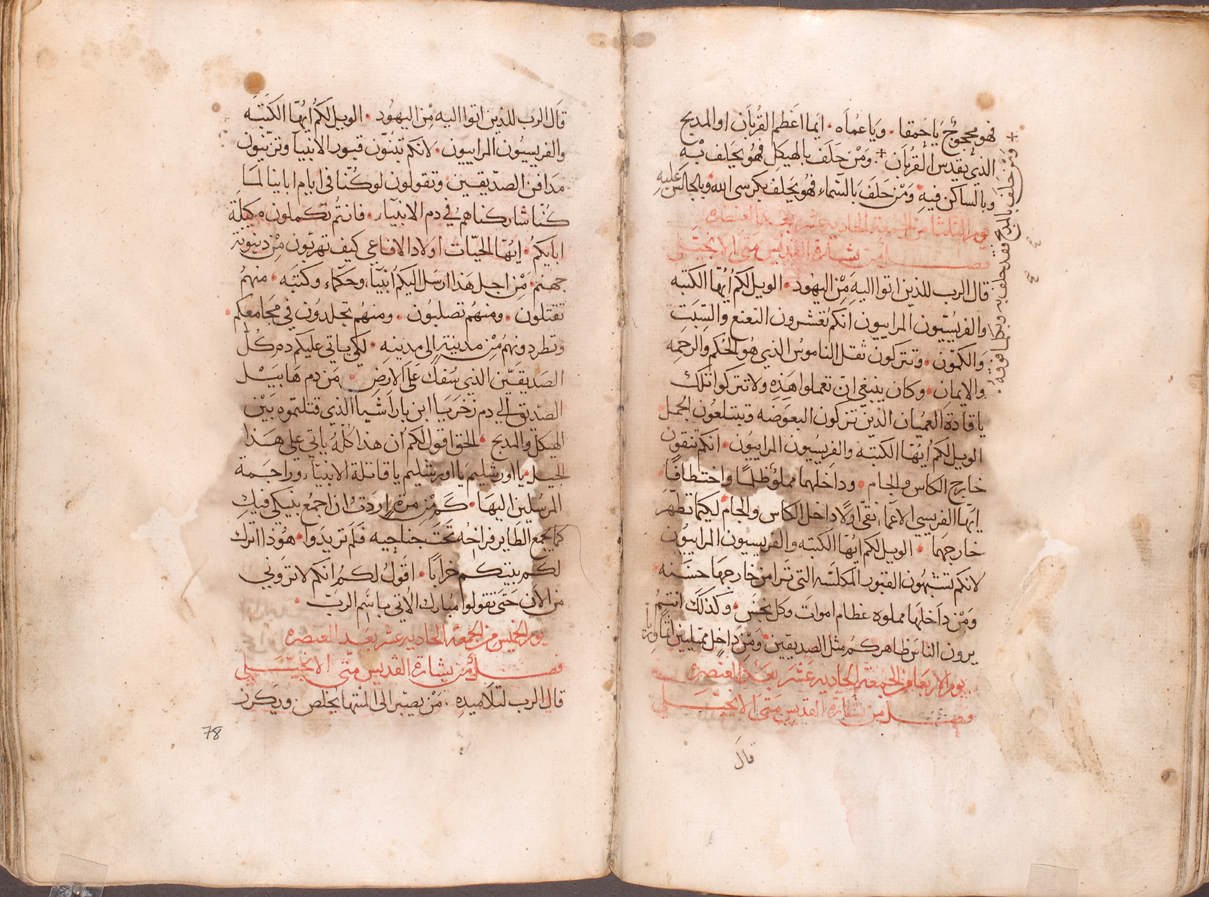 فهو محجوج يا حمقا . ويا عماه . ايما اعظم القربان او المدبح
الدي يقدس القربان + ومن حلف بالهيكل فهو يحلف به
وبالساكن فيه . ومن حلف بالسماء فهو يحلف بكرسي الله وبالجالس عليه
يوم الثلثا من الجمعة الحادية عشر بعد العنصره
فصل من بشارة القديس متى الانجيلي
قال الرب للدين اتوا اليه من اليهود . الويل لكم ايها الكتبه
والفريسيون المراييون انكم تعشرون النعنع والسبت
والكمون . وتتركون ثقل الناموس الذي هو الحكم والرحمه
والايمان . وكان ينبغي ان تعملوا هذه ولا تتركوا تلك
يا قادة العميان الذين تتركون البعوضه وتبتلعون الجمل
الويل لكم ايها الكتبه والفريسيون المراييون . انكم تنقون
خارج الكاس والجام . وداخلهما مملؤ ظلما واختطافا
ايها الفريسي الاعما نقي اولا داخل الكاس والجام لكيما تطهر
خارجهما . الويل لكم ايها الكتبه والفريسيون المراييون
لانكم تشبهون القبور المكلسه التي ترا من خارجها حسنه
ومن داخلها مملوه عظام اموات وكل نجس . وكذلك انتم
يرون الناس ظاهركم مثل الصديقين . ومن داخل ممتليين اثما وريا
يوم الاربعا من الجمعة الحادية عشر بعد العنصره
فصل من بشارة القديس متى الانجيلي
قال
+ ومن حلف بالمدبح فقد حلف به وبكلما فوقه
قال الرب للذين اتوا اليه من اليهود . الويل لكم ايها الكتبه
والفريسيون المراييون . لانكم تبنون قبور الانبيا وتزينون
مدافن الصديقين . وتقولون لو كنا في ايام اباينا لما
كنا شاركناهم في دم الانبيا . فانتم تكملون مكيلة
ابايكم . ايها الحيات اولاد الافاعي كيف تهربون من دينونة
جهنم . من اجل هذا ارسل اليكم انبيا وحكما وكتبه . منهم
تقتلون . ومنهم تصلبون . ومنهم تجلدون في مجامعكم .
وتطردونهم من مدينة الى مدينه . لكي ياتي عليكم دم كل
الصديقين الذي سفك على الارض . من دم هابيل
الصديق الى دم زخريا ابن باراشيا الذي قتلتموه بين
الهيكل والمدبح . الحق اقول لكم ان هذا كله ياتي على هذا
الجيل . يا اورشليم يا اورشليم يا قاتلة الانبيا . وراجمة
المرسلين اليها . كم من مرة اردت ان اجمع بنيكي فيك
كما يجمع الطاير فراخه تحت جناحيه فلم تريدوا . هودا اترك
لكم بيتكم خرابا . اقول لكم انكم لا تروني
من الان حتى تقولوا مبارك الاتي باسم الرب .
يوم الخميس من الجمعة الحادية عشر بعد العنصره
فصل من بشارة القديس متى الانجيلي
قال الرب لتلاميده . من يصبر الى المنتها يخلص . ويكرز
78